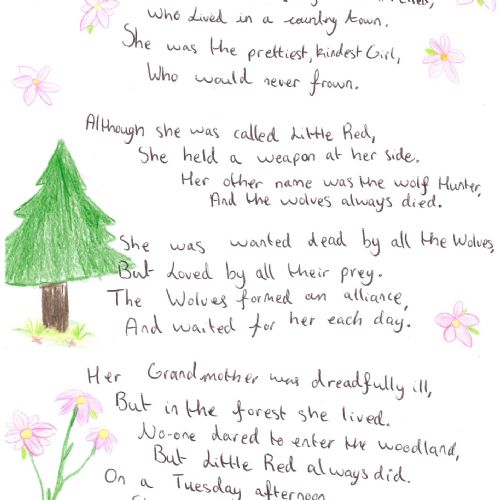 who lived in a country town.
She was the prettiest, kindest Girl,
Who would never frown.
Although she was called Little Red,
She held a weapon at her side.
Her other name was the wolf Hunter,
And the wolves always died.
She was wanted dead by all the Wolves,
But Loved by all their prey.
The Wolves formed an alliance,
And waited for her each day.
Her Grandmother was dreadfully ill,
But in the forest she lived.
No-one dared to enter the woodland,
But Little Red always did.
On a Tuesday afternoon